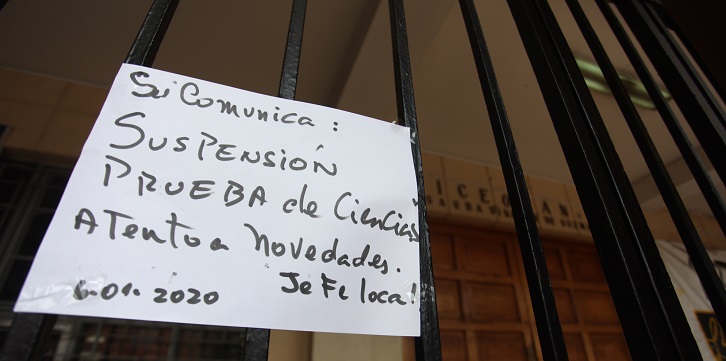 Se Comunica :
SUSPENSIÓN
PRUEBA de Ciencias
ATento a Novedades.
6.01.2020 Jefe local!
ICEO